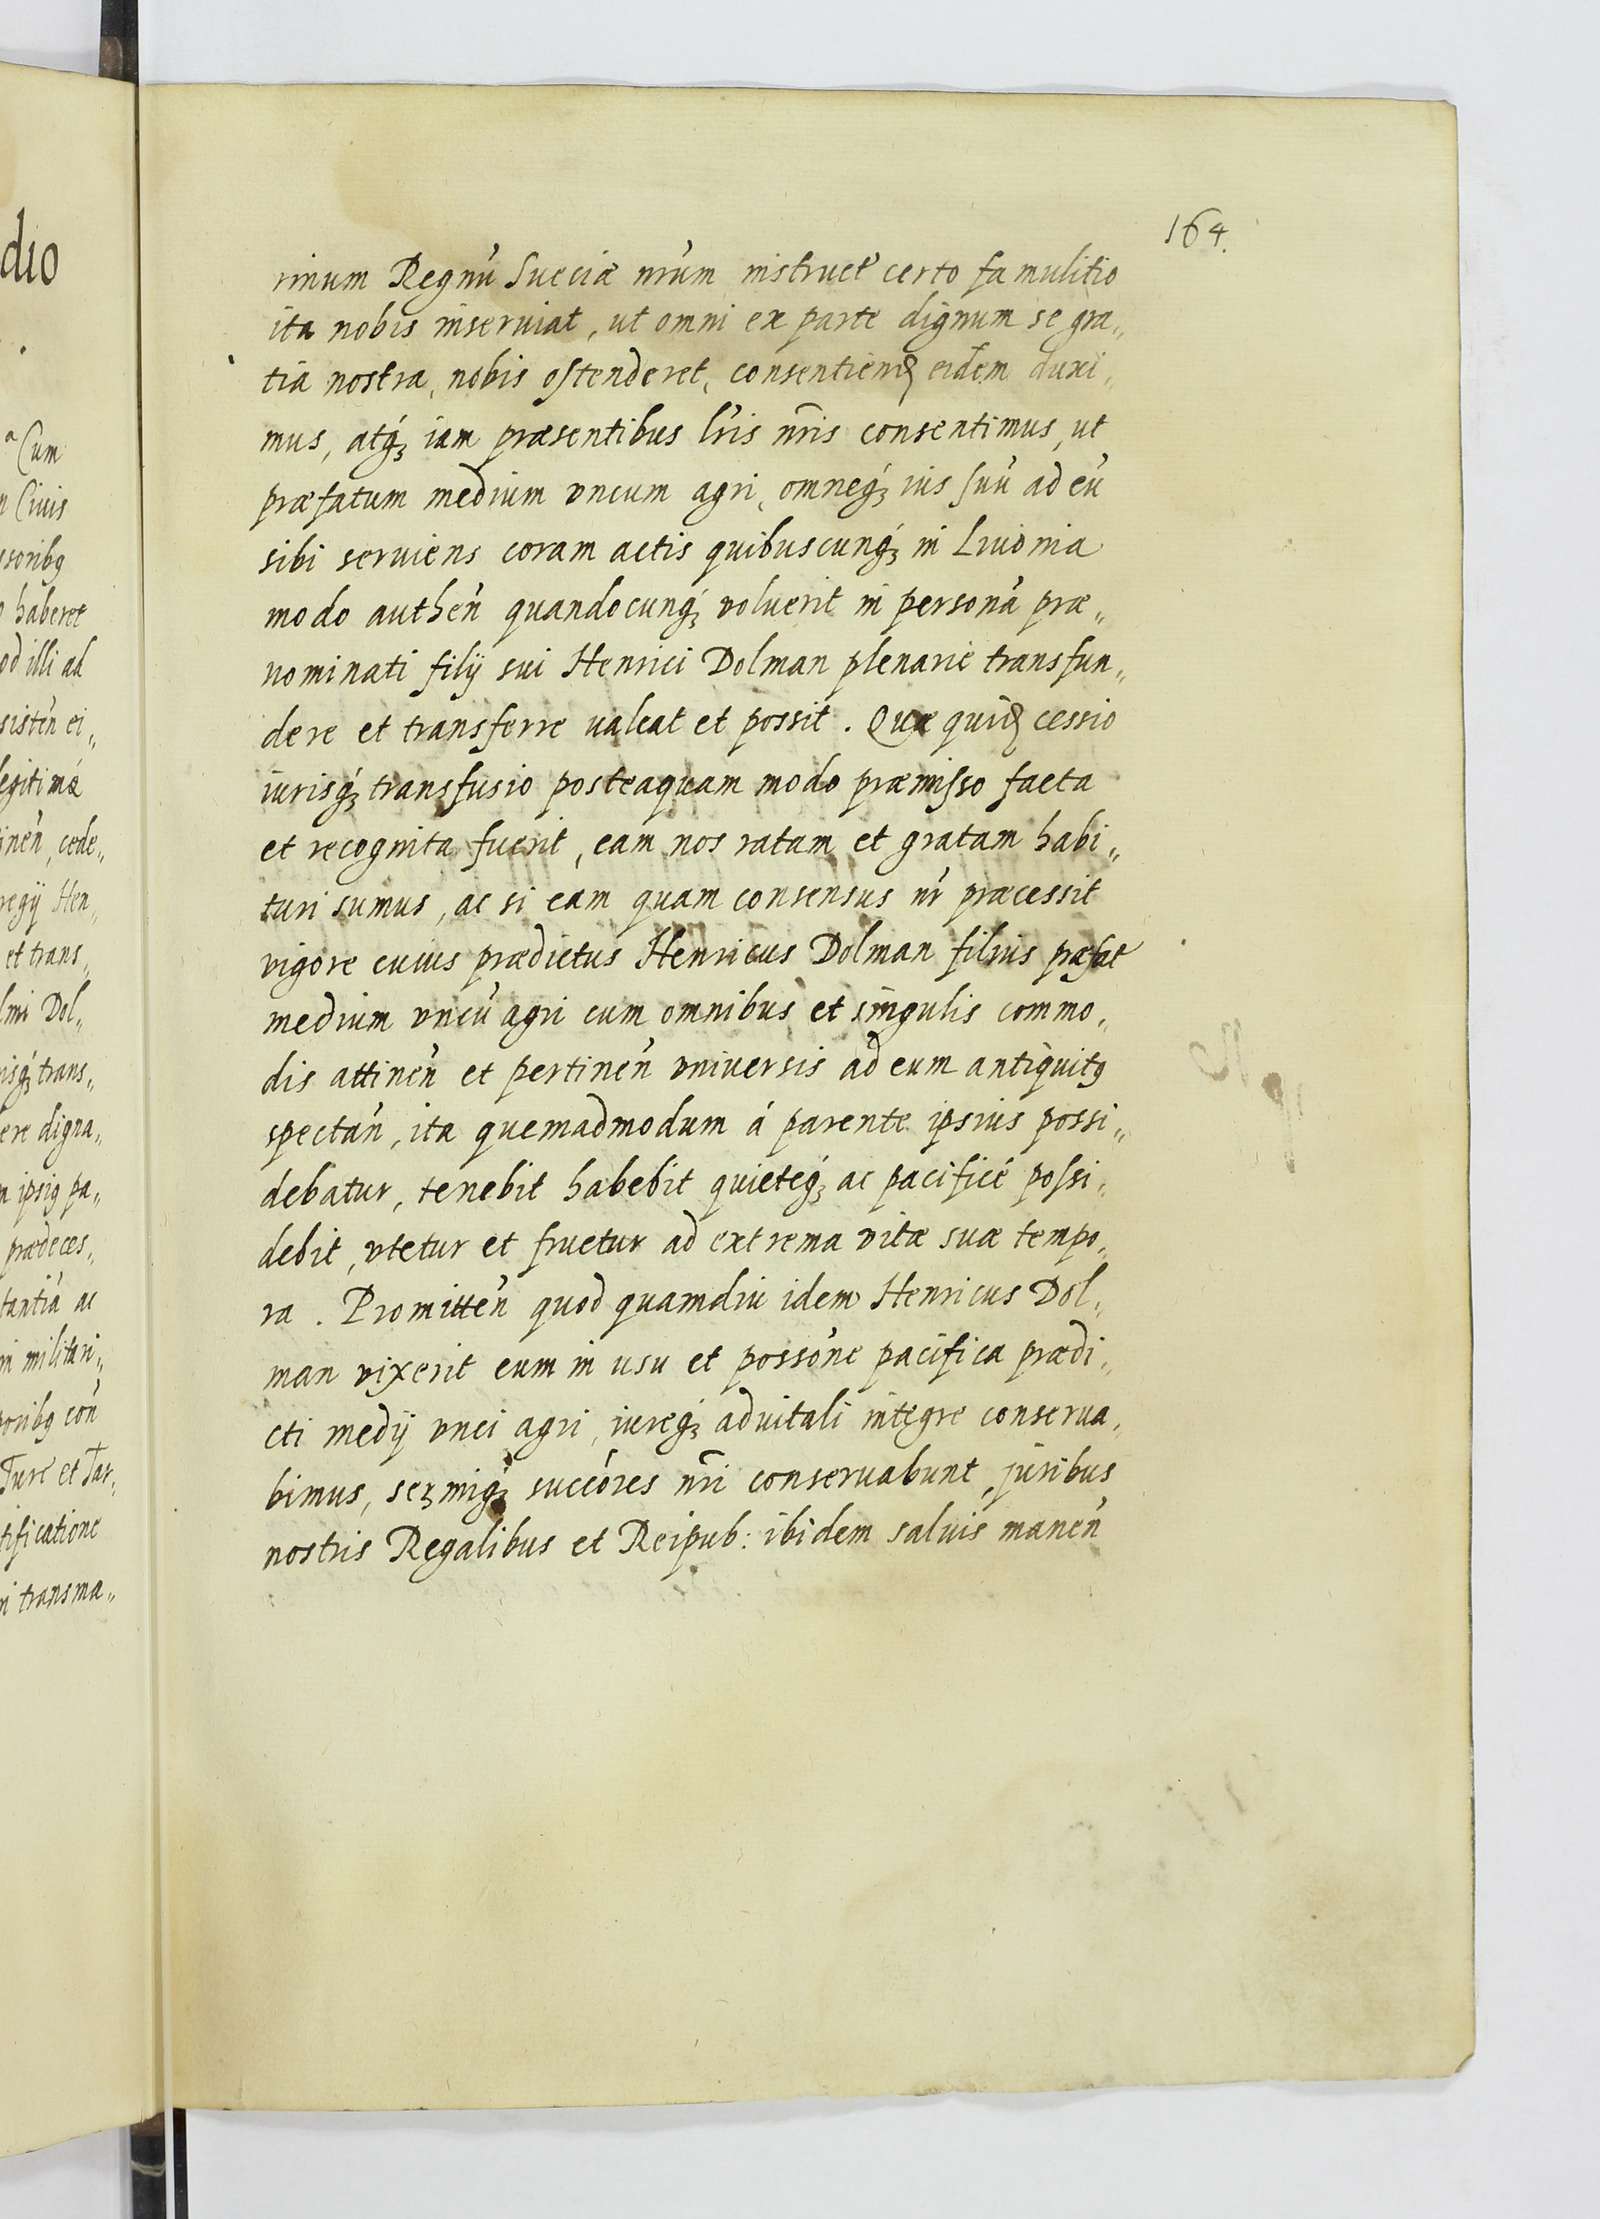 dio
Cum
Ciuis
ssoribq
haberet
od illi ad
sisteń ei„
legitimæ
ineń, cede„
regij Hen„
et trans„
lmi Dol„
isq́ʒ trans„
ere digna„
ipsiq pa„
prædeces„
tantiá ac
in militari„
oribq coń
Ture et Tar„
tificatione
transma„
164.
rinum Regnú Sueciæ nŕum instruct́ certo famulitio
ita nobis inseruiat, ut omni ex parte dignum se gra„
tia nostra, nobis ostenderet, consentienꝸ eidem duxi„
mus, atq́ʒ iam præsentibus lŕis nr̃is consentimus, ut
præfatum medium vncum agri, omneq́ʒ ius suú ad eú
sibi seruiens coram actis quibuscunq́ʒ in Liuonia
modo autheń quandocunq́ʒ voluerit in personá præ„
nominati filij sui Henrici Dolman plenarie transfun„
dere et transferre valeat et possit. Quæ quiꝸ cessio
iurisq́ʒ transfusio posteaquam modo præmisso facta
et recognita fuerit, eam nos ratam et gratam habi„
turi sumus, ac si eam quam consensus nŕ præcessit
vigore cuius prædictus Henricus Dolman filius præfat
medium vncú agri cum omnibus et singulis commo„
dis attineń et pertineń vniuersis ad eum antiquitq
spectań, ita quemadmodum á parente ipsius possi„
debatur, tenebit habebit quieteq́ʒ ac pacificé possi„
debit, vtetur et fruetur ad extrema vitæ suæ tempo„
ra. Promitteń quod quamdiu idem Henricus Dol„
man vixerit eum in usu et possońe pacifica prædi„
cti medij vnci agri, iureq́ʒ aduitali integre conserua„
bimus, serʒmiq́ʒ succóres nr̃i conseruabunt, juribus
nostris Regalibus et Reipub: ibidem saluis maneń